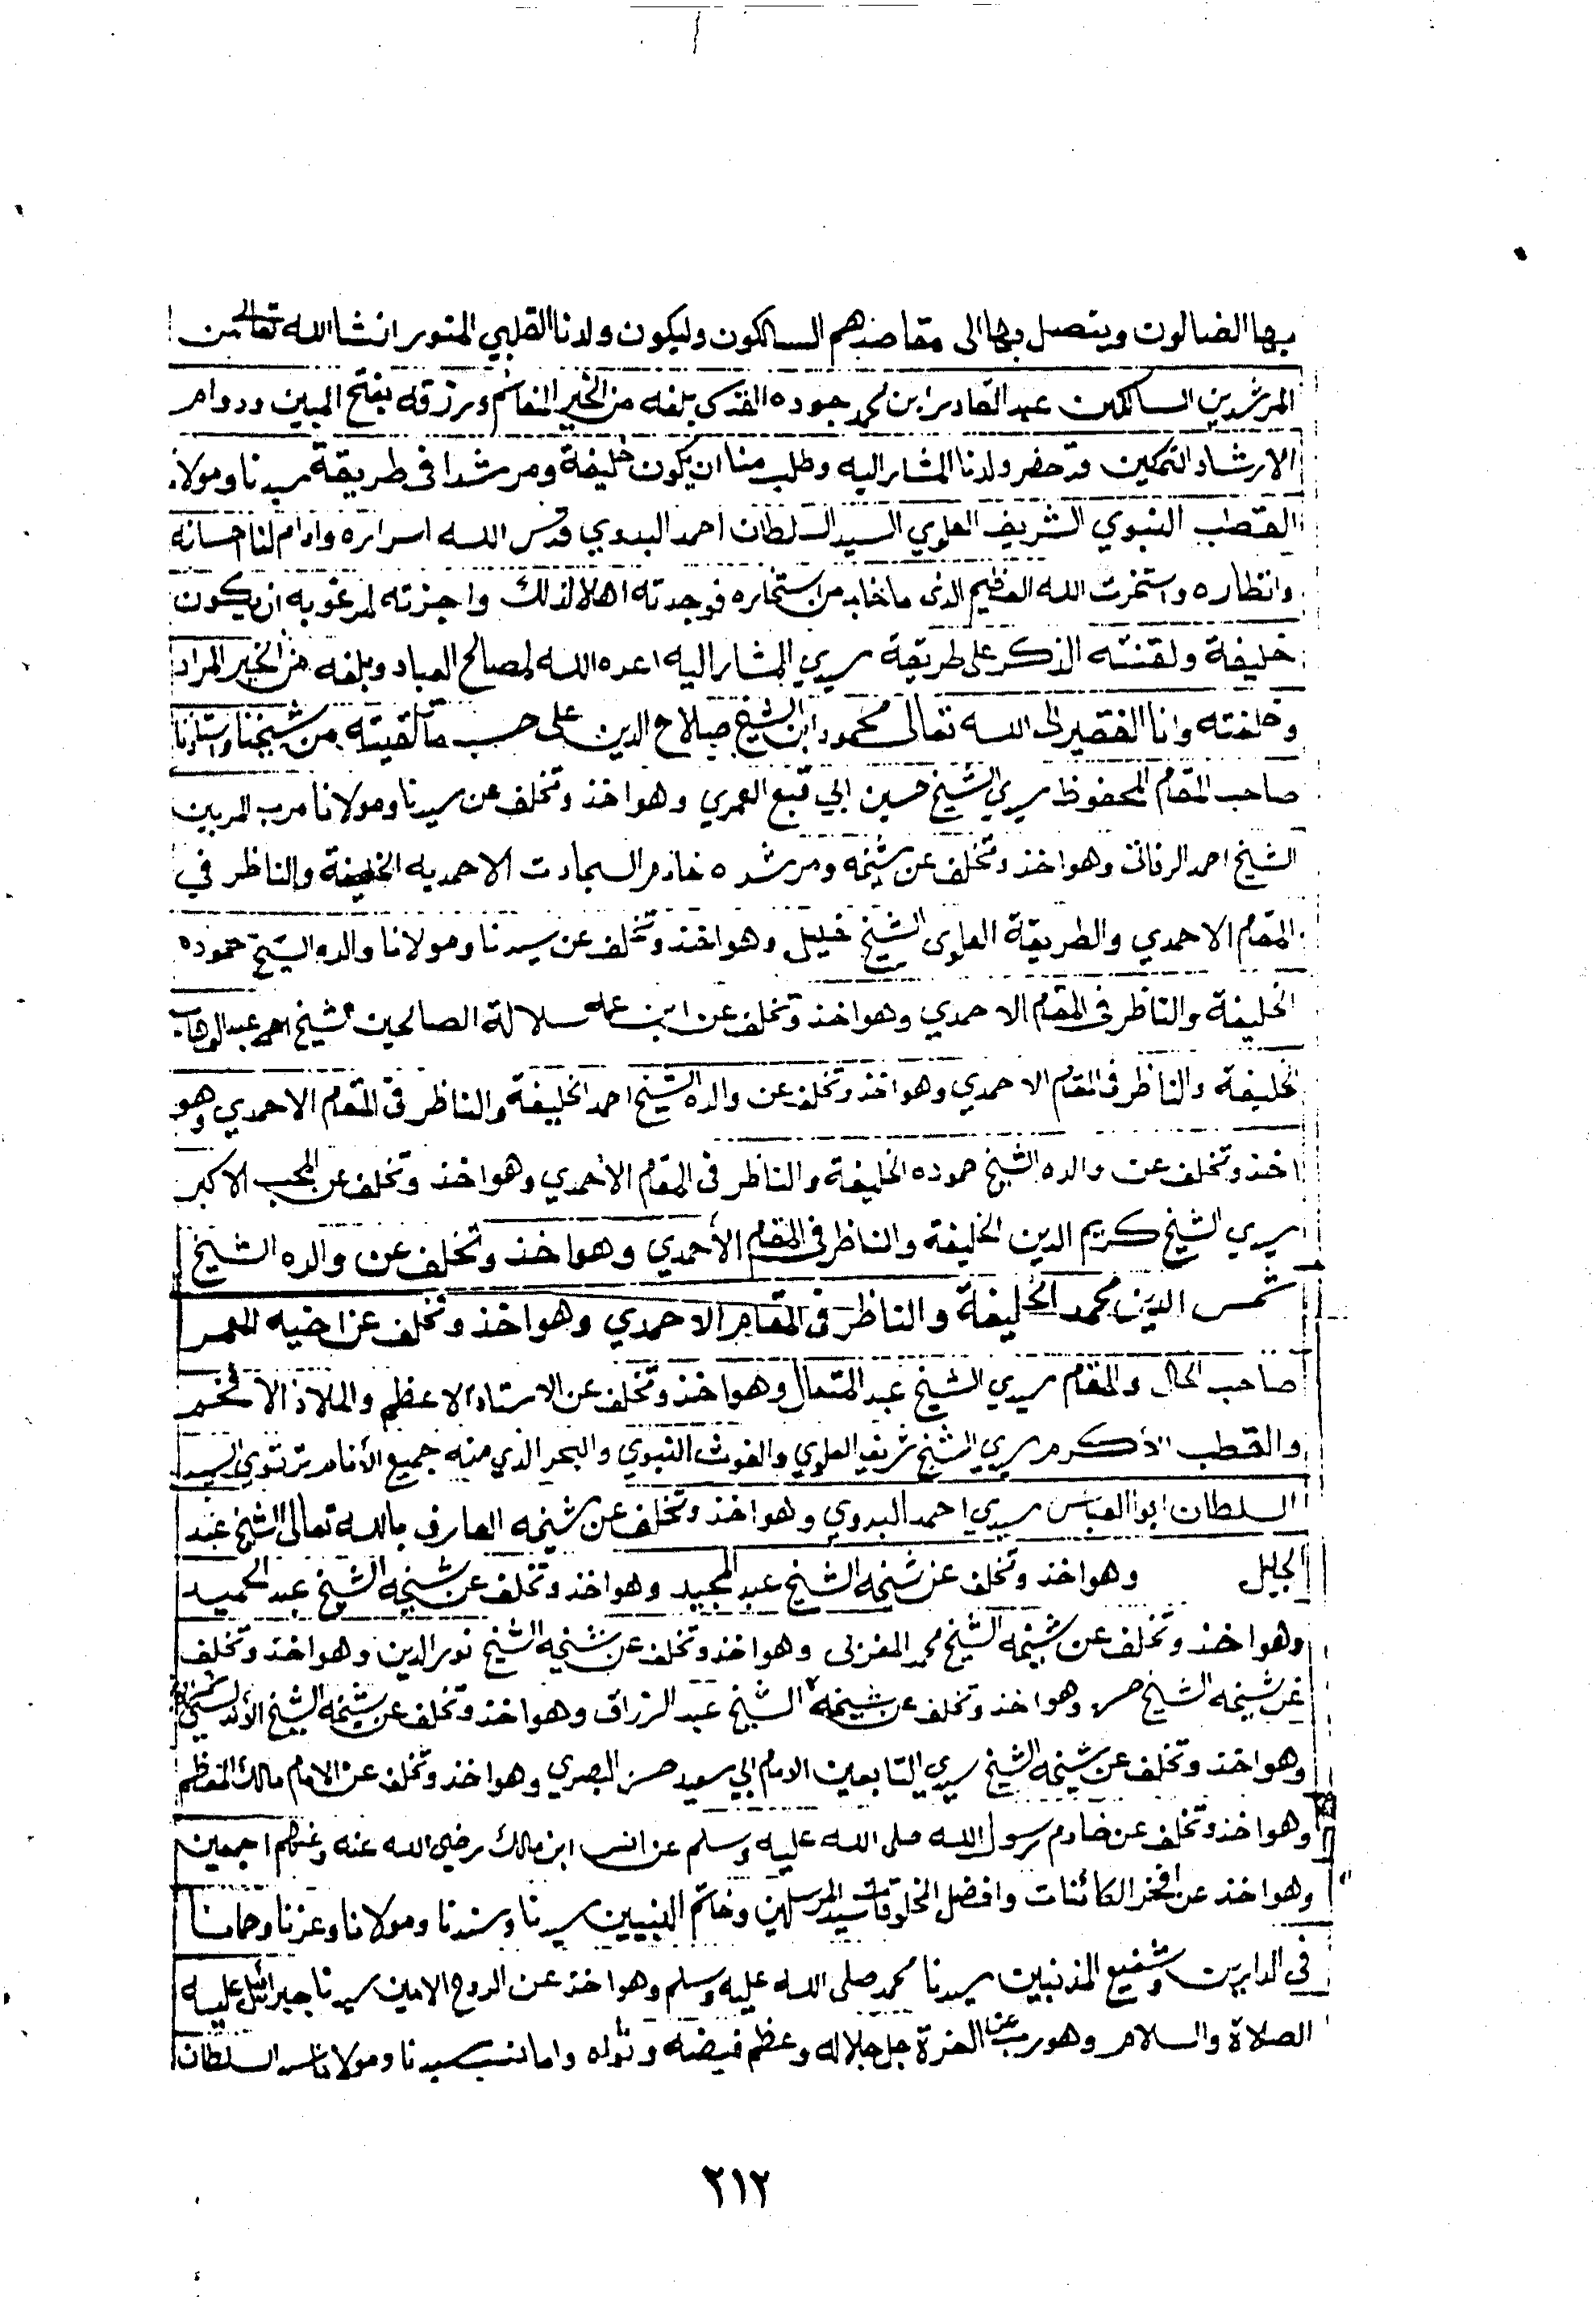 بها الضالون ويتصل بها الى مقاصدهم السالكون وليكون ولدنا القلبي المنور انشا الله تعالى من
المرشدين السالكين عبد القادر ابن محمد جوده القدسى بلغه من الخير المغانم ورزقه بفتح المبين ودوام
الارشاد التمكين قد حضر ولدنا المشار اليه وطلب منا ان يكون خليفة ومرشدا فى طريقة سيدنا ومولانا
القطب النبوي الشريف العلوي السيد السلطان احمد البدوي قدس الله اسراره وادام لنا احسانه
وانظاره واستخرت الله العظيم الذى ما خاب من استخاره فوجدته اهلا لذلك واجزته لمرغوبه ان يكون
خليفة ولقنته الذكر على طريقة سيدي المشار اليه اعده الله لمصالح العباد وبلغه من الخير المراد
وخلفته وانا الفقير الى الله تعالى محمود ابن الشيخ صلاح الدين على حسب ما تلقيته من شيخنا واستاذنا
صاحب المقام المحفوظ سيدي الشيخ حسين ابي قبع العمري وهو اخذ وتخلف عن سيدنا ومولانا مرب المريين
الشيخ احمد الرفاتى وهو اخذ وتخلف عن شيخه ومرشده خادم السجادت الاحمديه الخليفة والناظر في
المقام الاحمدي والطريقة العلوى الشيخ خليل وهو اخذ وتخلف عن سيدنا ومولانا والده الشيخ حموده
الخليفة والناظر فى المقام الاحمدي وهو اخذ وتخلف عن ابن عمه سلالة الصالحين الشيخ احمد عبد الوهاب
الخليفة والناظر فى المقام الاحمدي وهو اخذ وتخلف عن والده الشيخ احمد الخليفة والناظر فى المقام الاحمدي وهو
اخذ وتخلف عن والده الشيخ حموده الخليفة والناظر فى المقام الأحمدي وهو اخذ وتخلف عن المحب الاكبر
سيدي الشيخ كريم الدين الخليفة والناظر فى المقام الأحمدي وهو اخذ وتخلف عن والده الشيخ
شمس الدين محمد الخليفة والناظر فى المقام الاحمدي وهو اخذ وتخلف عن اخيه المعمر
صاحب الحال والمقام سيدي الشيخ عبد المتعال وهو اخذ وتخلف عن الاستاذ الاعظم والملاذ الأفخم
والقطب الأكرم سيدي الشيخ شريف العلوي والغوث النبوي والبحر الذي منه جميع الأنام ترتوي السيد
السلطان ابو العباس سيدي احمد البدوي وهو اخذ وتخلف عن شيخه العارف بالله تعالى الشيخ عبد
الجليل وهو اخذ وتخلف عن شيخه الشيخ عبد المجيد وهو اخذ وتخلف عن شيخه الشيخ عبد الحميد
وهو اخذ وتخلف عن شيخه الشيخ محمد المغربى وهو اخذ وتخلف عن شيخه الشيخ نور الدين وهو اخذ وتخلف
عن شيخه الشيخ حسن وهو اخذ وتخلف عن شيخه الشيخ عبد الرزاق وهو اخذ وتخلف عن شيخه الشيخ
وهو اخذ وتخلف عن شيخه الشيخ سيدي التابعين الامام ابي سعيد حسن البصري وهو اخذ وتخلف عن الامام مالك المعظم
وهو اخذ وتخلف عن خادم رسول الله صلى الله عليه وسلم عن انس ابن مالك رضي الله عنه وعنهم اجمعين
وهو اخذ عن افخر الكائنات وافضل المخلوقات سيد المرسلين وخاتم النبيين سيدنا وسندنا ومولانا وعزنا وحمانا
فى الدارين وشفيع المذنبين سيدنا محمد صلى الله عليه وسلم وهو اخذ عن الروح الامين سيدنا جبرائيل عليه
الصلاة والسلام وهو عن رب العزة جل جلاله وعظم فيضه ونواله واما نسب سيدنا ومولانا السلطان
٢١٢